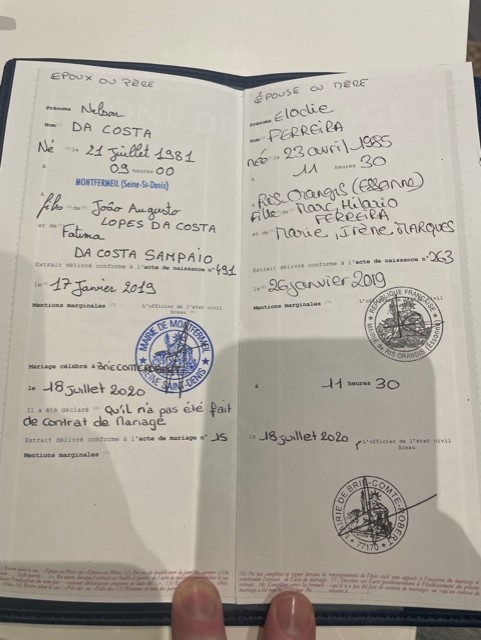 EPOUX OU PÈRE
Prénoms Nelson
Nom DA COSTA
Né le 21 Juillet 1981
à 09 heures 00
MONTFERMEIL (Seine-St-Denis)
fils de João Augusto
LOPES DA COSTA
et de Fatima
DA COSTA SAMPAIO
Extrait délivré conforme à l'acte de naissance n° 491
le 17 Janvier 2019
Mentions marginales L'officier de l'état civil
Sceau
MAIRIE DE MONTFERMEIL
SEINE SAINT-DENIS
Mariage célébré à
le 18 juillet 2020
Il a été déclaré Qu'il n'a pas été fait
de contrat de Mariage
Extrait délivré conforme à l'acte de mariage n° 15
Mentions marginales
ÉPOUSE OU MÈRE
Prénoms Elodie
Nom FERREIRA
Née le 23 avril 1985
à 11 heures 30
à Ris Orangis (Essonne)
Fille de Marc, Hilario
FERREIRA
et de Marie, Irène MARQUES
Extrait délivré conforme à l'acte de naissance n° 263
le 26 janvier 2019
Mentions marginales
REPUBLIQUE FRANÇAISE
MAIRIE de RIS ORANGIS (Essonne)
à 11 heures 30
le 18 juillet 2020 L'officier de l'état civil
Sceau
MAIRIE DE BRIE-COMTE-ROBERT
77170